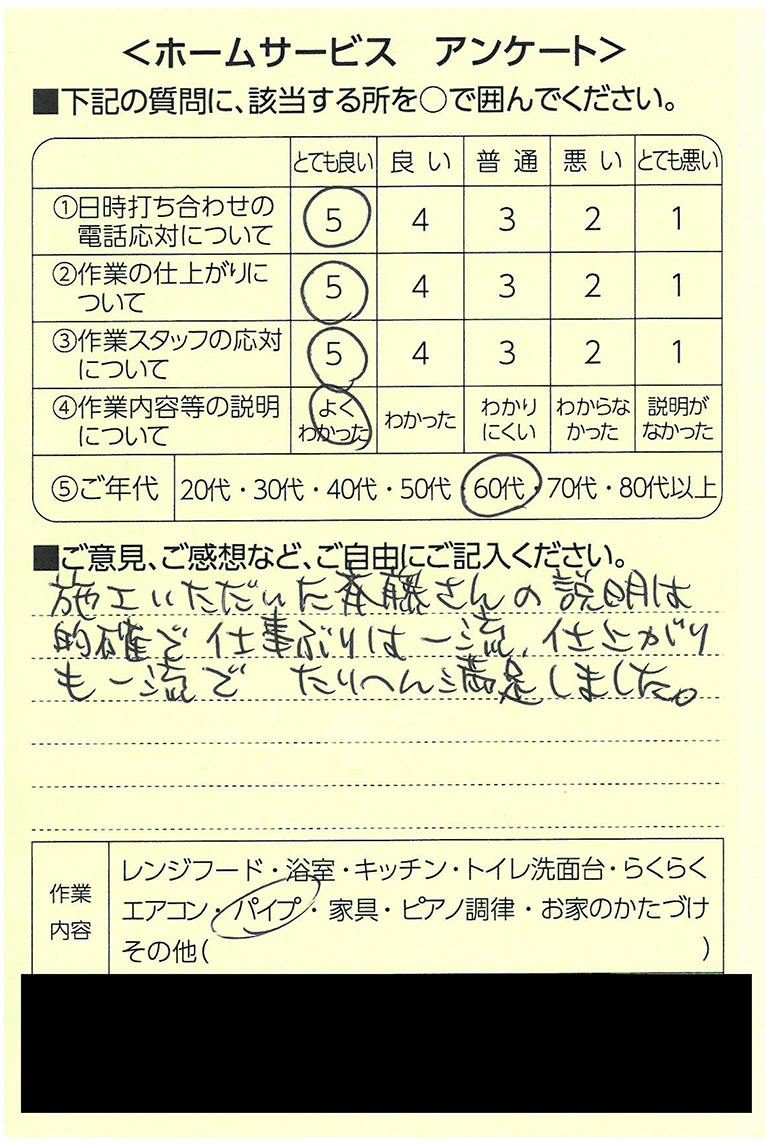 ＜ホームサービス　アンケート＞
■下記の質問に、該当する所を○で囲んでください。
とても良い 良い 普通 悪い とても悪い
①日時打ち合わせの電話応対について 5 4 3 2 1
②作業の仕上がりについて 5 4 3 2 1
③作業スタッフの応対について 5 4 3 2 1
④作業内容等の説明について よくわかった わかった わかりにくい わからなかった 説明がなかった
⑤ご年代 20代・30代・40代・50代・60代・70代・80代以上
■ご意見、ご感想など、ご自由にご記入ください。
施工いただいた斉藤さんの説明は
的確で仕事ぶりは一流、仕上がり
も一流で たいへん満足しました。
作業内容
レンジフード・浴室・キッチン・トイレ洗面台・らくらく
エアコン・パイプ・家具・ピアノ調律・お家のかたづけ
その他（ ）